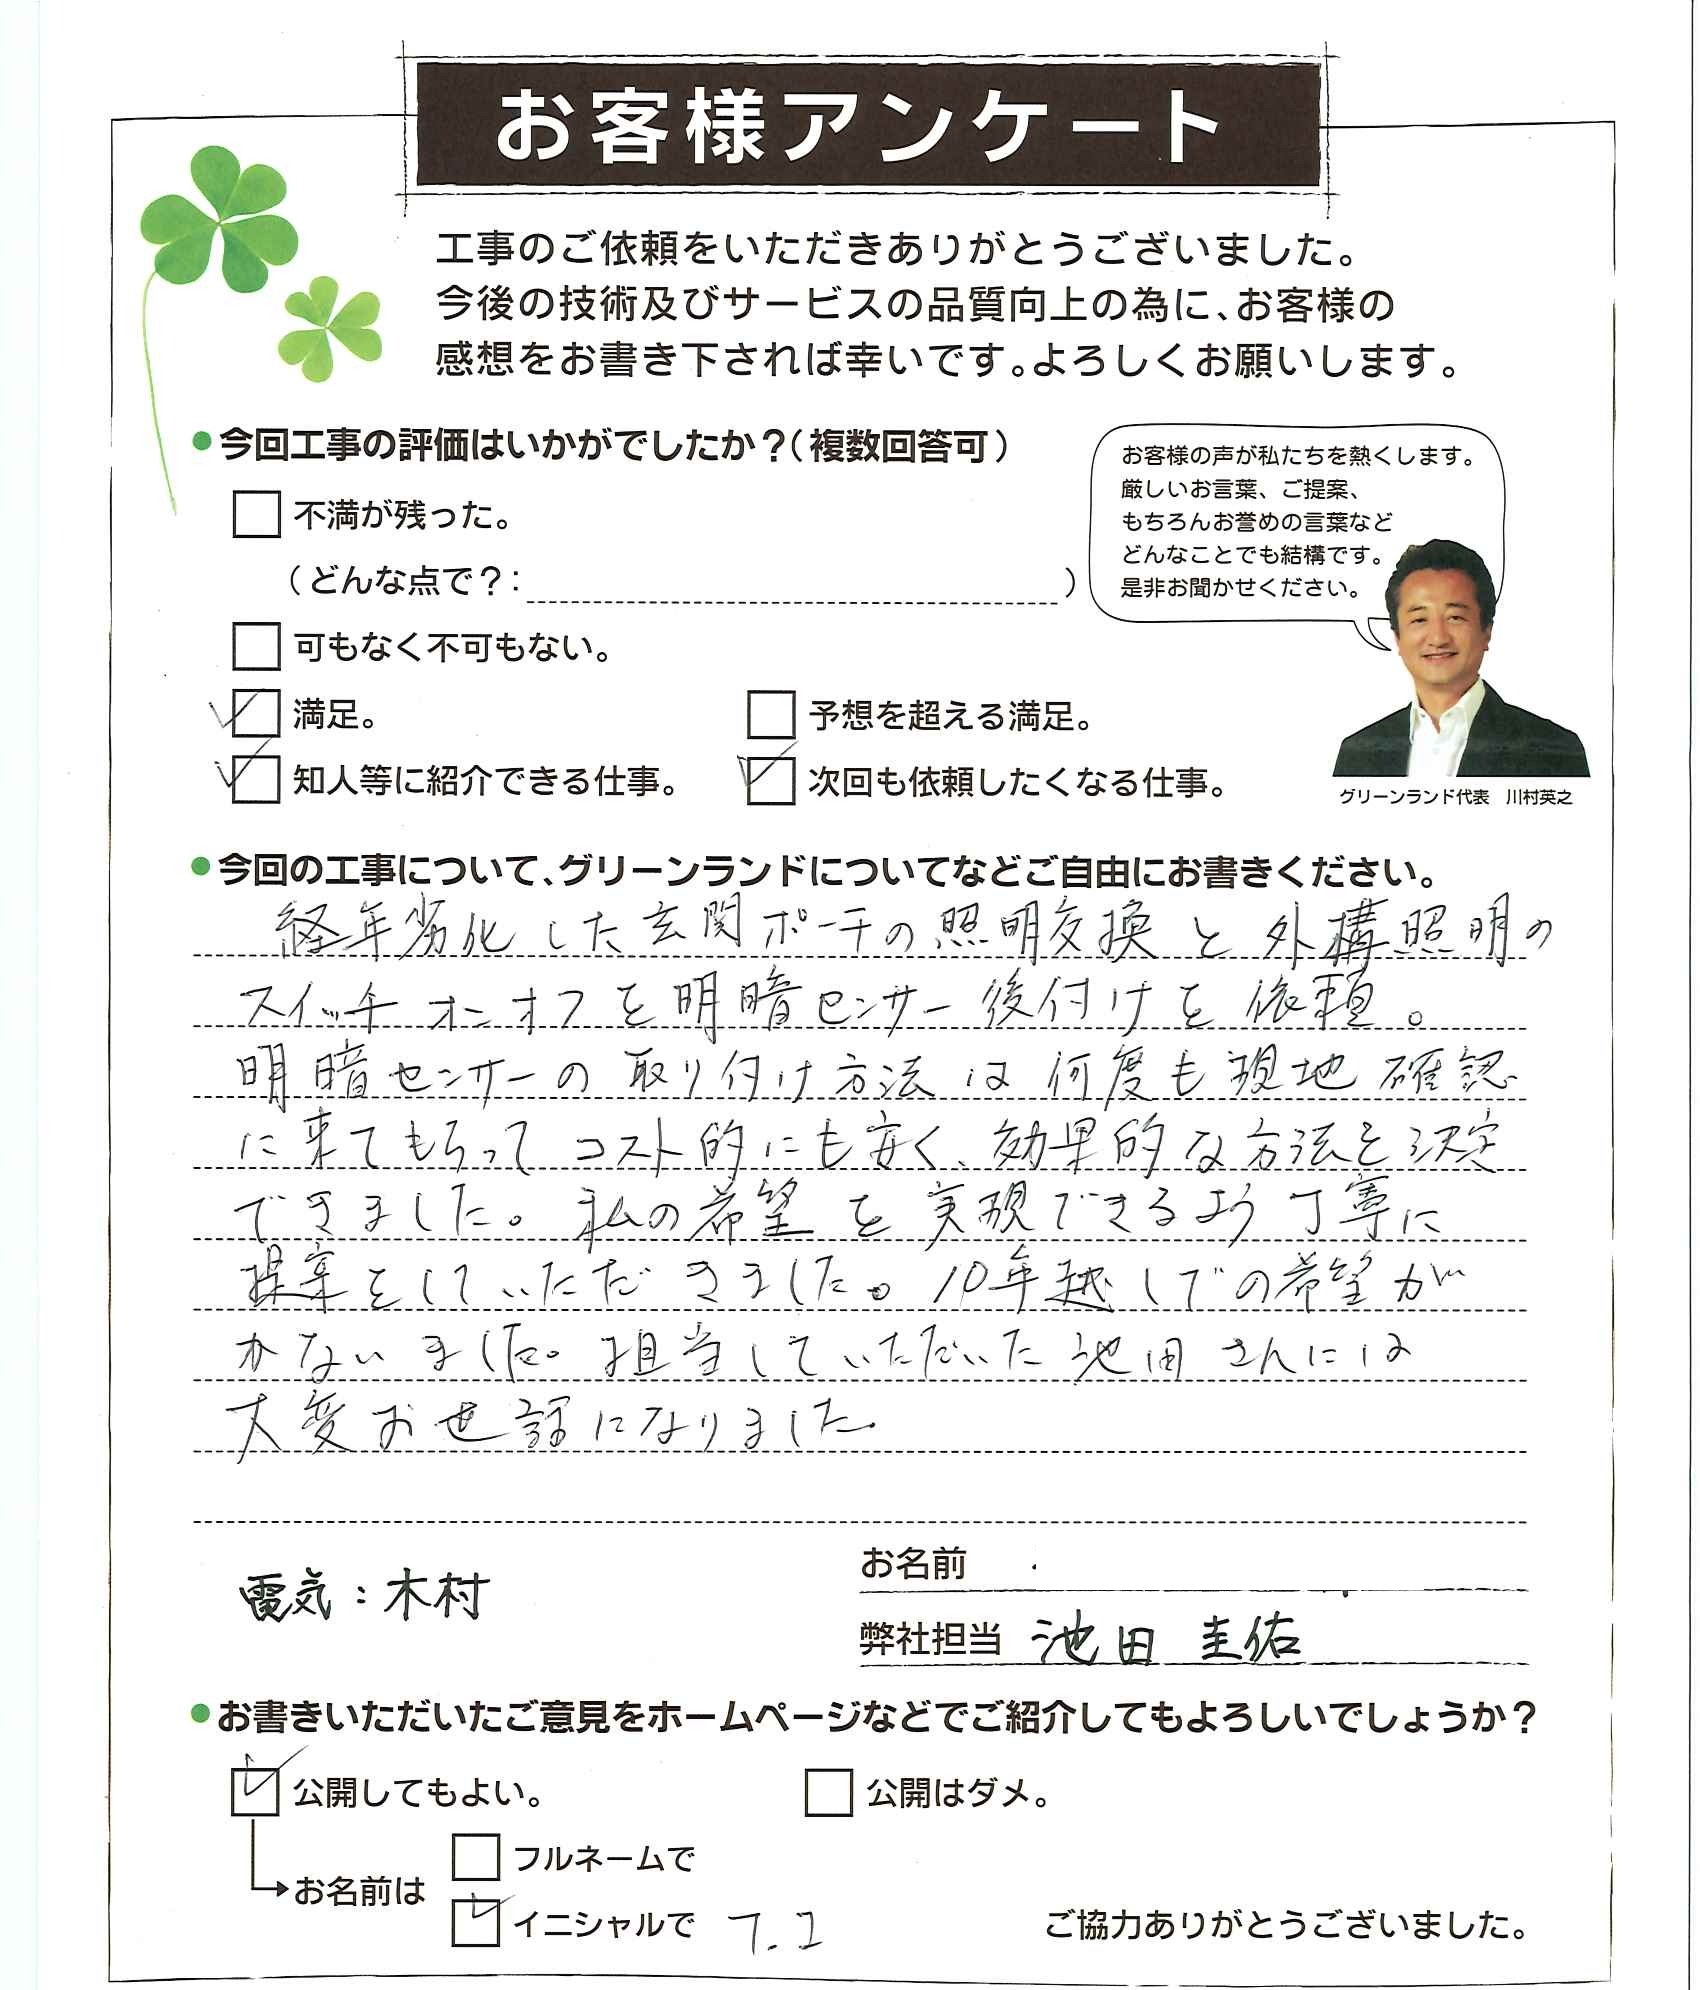 お客様アンケート
工事のご依頼をいただきありがとうございました。
今後の技術及びサービスの品質向上の為に、お客様の
感想をお書き下されば幸いです。よろしくお願いします。
●今回工事の評価はいかがでしたか？（複数回答可）
不満が残った。
（どんな点で？：　）
可もなく不可もない。
満足。
予想を超える満足。
知人等に紹介できる仕事。
次回も依頼したくなる仕事。
お客様の声が私たちを熱くします。
厳しいお言葉、ご提案、
もちろんお誉めの言葉など
どんなことでも結構です。
是非お聞かせください。
グリーンランド代表　川村英之
●今回の工事について、グリーンランドについてなどご自由にお書きください。
経年劣化した玄関ポーチの照明交換と外構照明の
スイッチオンオフを明暗センサー後付けを依頼。
明暗センサーの取り付け方法は何度も現地確認
に来てもらってコスト的にも安く、効果的な方法を決定
できました。私の希望を実現できるよう丁寧に
提案をしていただきました。10年越しでの希望が
かないました。担当していただいた池田さんには
大変お世話になりました
電気：木村
お名前
弊社担当　池田　圭佑
●お書きいただいたご意見をホームページなどでご紹介してもよろしいでしょうか？
公開してもよい。
公開はダメ。
お名前は
フルネームで
イニシャルで　T.I
ご協力ありがとうございました。